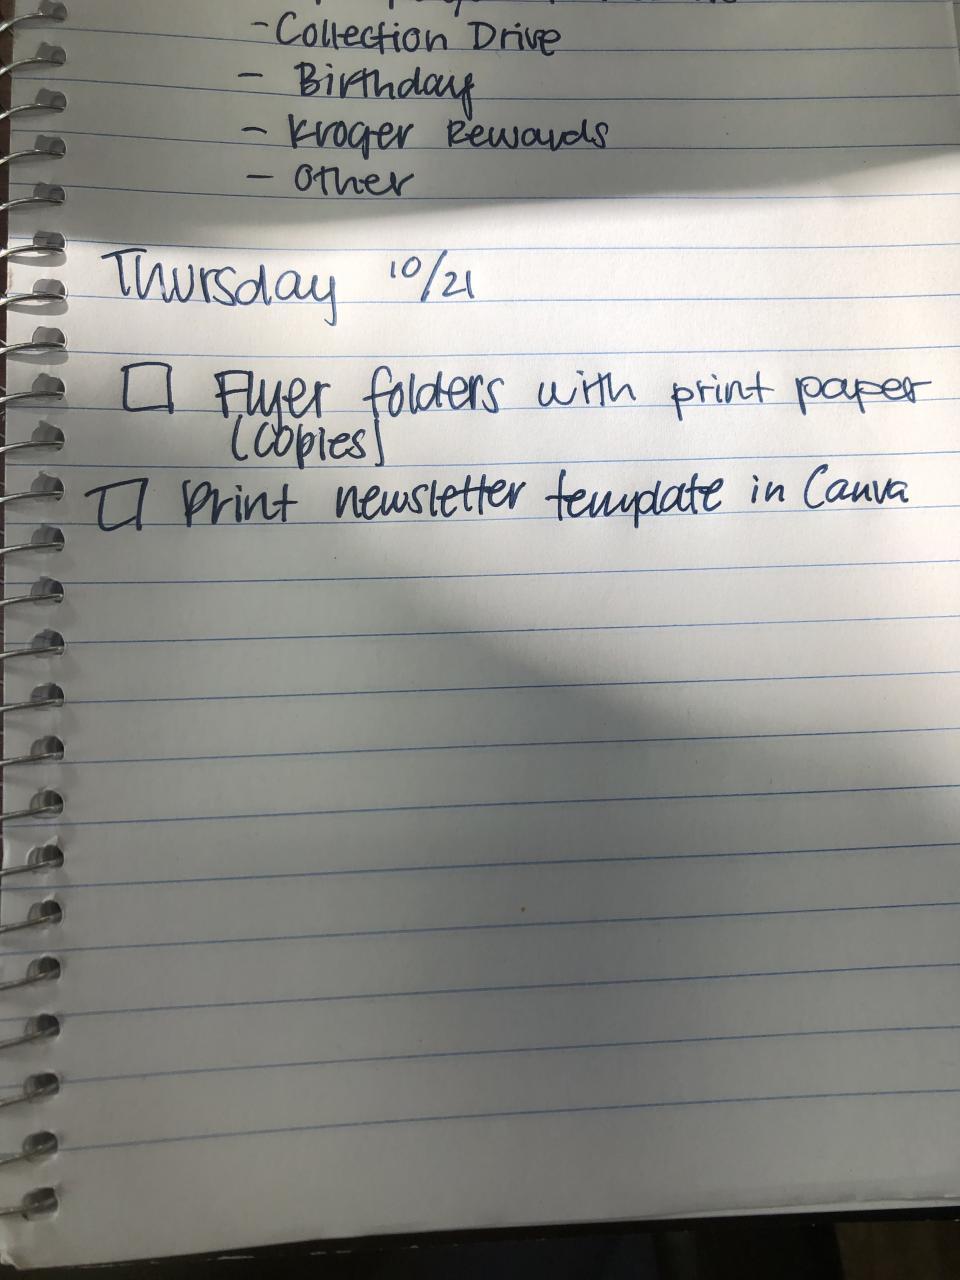 -Collection Drive
- Birthday
- Kroger Rewards
- Other
Thursday 10/21
Flyer folders with print paper
(copies)
Print newsletter template in Canva